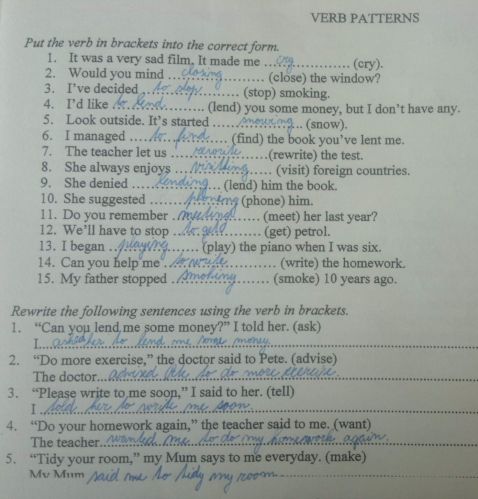 VERB PATTERNS
Put the verb in brackets into the correct form.
1. It was a very sad film, It made me ...cry............... (cry).
2. Would you mind ...closing............ (close) the window?
3. I've decided ..to stop......... (stop) smoking.
4. I'd like to lend......... (lend) you some money, but I don't have any.
5. Look outside. It's started .........snowing... (snow).
6. I managed .....to find...... (find) the book you've lent me.
7. The teacher let us ....rewrite.........(rewrite) the test.
8. She always enjoys ...visiting......... (visit) foreign countries.
9. She denied ......lending... (lend) him the book.
10. She suggested .........phoning (phone) him.
11. Do you remember .meeting........ (meet) her last year?
12. We'll have to stop ..to get........ (get) petrol.
13. I began ..playing......... (play) the piano when I was six.
14. Can you help me ..to write............ (write) the homework.
15. My father stopped .smoking............ (smoke) 10 years ago.
Rewrite the following sentences using the verb in brackets.
1. "Can you lend me some money?" I told her. (ask)
I...asked her to lend me some money.
2. "Do more exercise," the doctor said to Pete. (advise)
The doctor...advised Pete to do more exercise.
3. "Please write to me soon," I said to her. (tell)
I ..told her to write me soon
4. "Do your homework again," the teacher said to me. (want)
The teacher..wanted me to do my homework again.
5. "Tidy your room," my Mum says to me everyday. (make)
My Mum said me to tidy my room